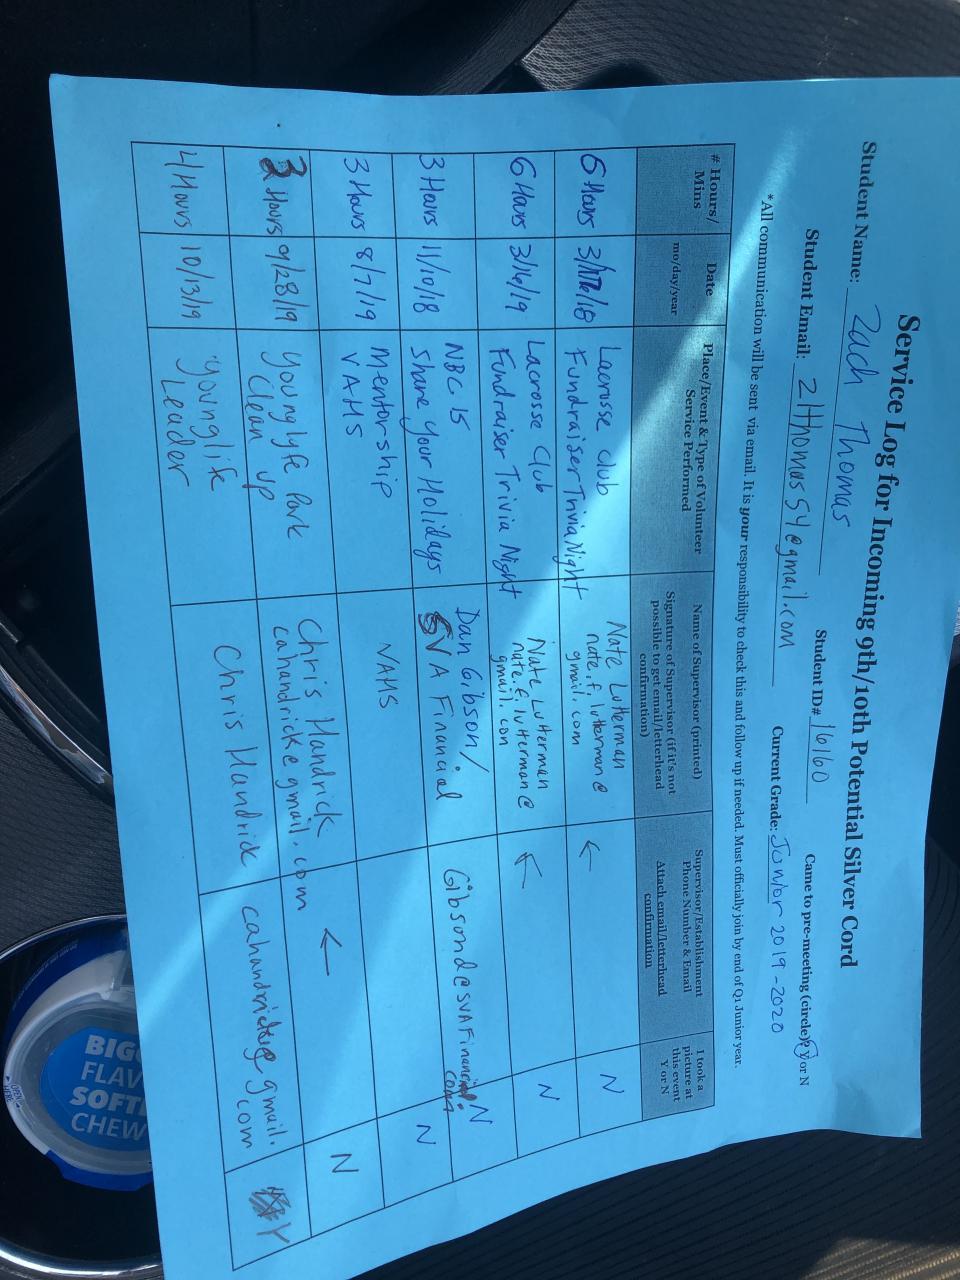 Service Log for Incoming 9th/10th Potential Silver Cord
Student Name: Zach Thomas Student ID# 16160 Came to pre-meeting (circle)? Y or N
Student Email: 21Thomas54@gmail.com Current Grade: Junior 2019-2020
*All communication will be sent via email. It is your responsibility to check this and follow up if needed. Must officially join by end of Q1 Junior year.
# Hours/
Mins
Date
mo/day/year
Place/Event & Type of Volunteer
Service Performed
Name of Supervisor (printed)
Signature of Supervisor (if it's not
possible to get email/letterhead
confirmation)
Supervisor/Establishment
Phone Number & Email
Attach email/letterhead
confirmation
I took a
picture at
this event
Y or N
6 Hours
Lacrosse Club
Fundraiser Trivia Night
Nate Lutterman
nate.f.lutterman@
gmail.com
←
N
6 Hours
3/16/19
Lacrosse Club
Fundraiser Trivia Night
Nate Lutterman
nate.f.lutterman@
gmail.com
←
N
3 Hours
11/10/18
NBC 15
Share Your Holidays
Dan Gibson/
SVA Financial
Gibsond@SVAFinancial.
com
N
3 Hours
8/7/19
Mentorship
VAHS
VAHS
N
3 Hours
9/28/19
Younglyfe Park
Clean up
Chris Handrick
cahandrick@gmail.com
←
N
4 Hours
10/13/19
Younglife
Leader
Chris Handrick
cahandrick@gmail.
com
Y
BIG
FLAV
SOFT
CHEW
OPEN
HERE